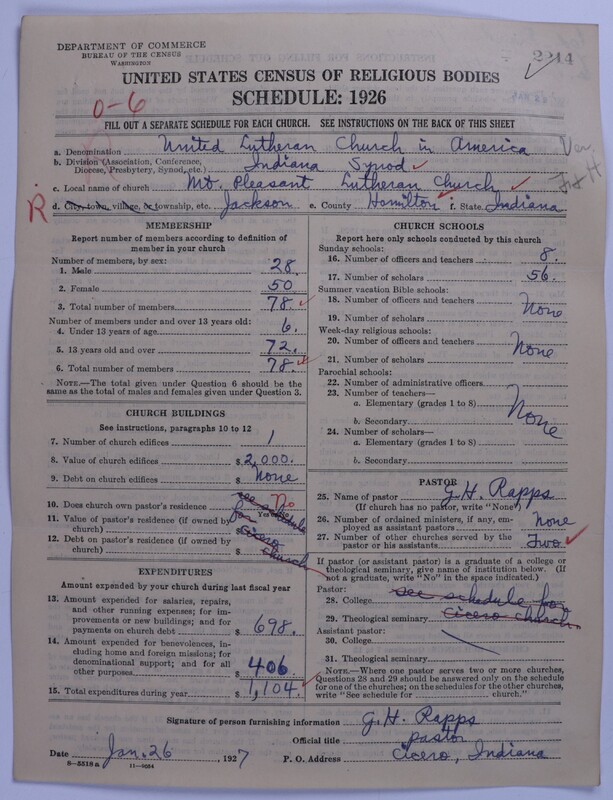 DEPARTMENT OF COMMERCE
BUREAU OF THE CENSUS
WASHINGTON
2214
UNITED STATES CENSUS OF RELIGIOUS BODIES
SCHEDULE: 1926
0-6
FILL OUT A SEPARATE SCHEDULE FOR EACH CHURCH. SEE INSTRUCTIONS ON THE BACK OF THIS SHEET
a. Denomination United Lutheran Church in America
b. Division (Association, Conference, Diocese, Presbytery, Synod, etc.) Indiana Synod
c. Local name of church Mt. Pleasant Lutheran Church
R
d. City, town, village, or township, etc. Jackson e. County Hamilton f. State Indiana
MEMBERSHIP
Report number of members according to definition of
member in your church
Number of members, by sex:
1. Male 28.
2. Female 50
3. Total number of members 78.
Number of members under and over 13 years old:
4. Under 13 years of age 6.
5. 13 years old and over 72.
6. Total number of members 78.
NOTE.—The total given under Question 6 should be
the same as the total of males and females given under Question 3.
CHURCH BUILDINGS
See instructions, paragraphs 10 to 12
7. Number of church edifices 1
8. Value of church edifices $ 2,000.
9. Debt on church edifices $ None
10. Does church own pastor's residence No
Yes or No
11. Value of pastor's residence (if owned by
church)
12. Debt on pastor's residence (if owned by
church)
see schedule
for
Cicero
church
EXPENDITURES
Amount expended by your church during last fiscal year
13. Amount expended for salaries, repairs,
and other running expenses; for im-
provements or new buildings; and for
payments on church debt $ 698.
14. Amount expended for benevolences, in-
cluding home and foreign missions; for
denominational support; and for all
other purposes $ 406
15. Total expenditures during year $ 1,104.
CHURCH SCHOOLS
Report here only schools conducted by this church
Sunday schools:
16. Number of officers and teachers 8.
17. Number of scholars 56.
Summer vacation Bible schools:
18. Number of officers and teachers
None
19. Number of scholars
Week-day religious schools:
20. Number of officers and teachers
None
21. Number of scholars
Parochial schools:
22. Number of administrative officers
23. Number of teachers—
a. Elementary (grades 1 to 8)
None
b. Secondary
24. Number of scholars—
a. Elementary (grades 1 to 8)
b. Secondary
PASTOR
25. Name of pastor G.H. Rapps
(If church has no pastor, write "None")
26. Number of ordained ministers, if any, em-
ployed as assistant pastors None
27. Number of other churches served by the
pastor or his assistants Two
If pastor (or assistant pastor) is a graduate of a college or
theological seminary, give name of institution below. (If
not a graduate, write "No" in the space indicated.)
Pastor:
28. College see schedule for
29. Theological seminary Cicero church
Assistant pastor:
30. College
31. Theological seminary
NOTE.—Where one pastor serves two or more churches,
Questions 28 and 29 should be answered only on the schedule
for one of the churches; on the schedules for the other churches,
write "See schedule for church."
Signature of person furnishing information G.H. Rapps
Official title pastor
Date Jan. 26, 1927 P. O. Address Cicero, Indiana
8-5518a 11-9084